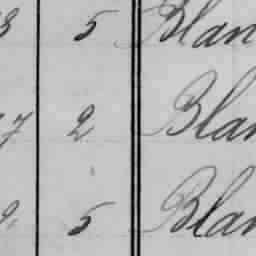 8 5 Blan
7 2 Blan
2 5 Blan